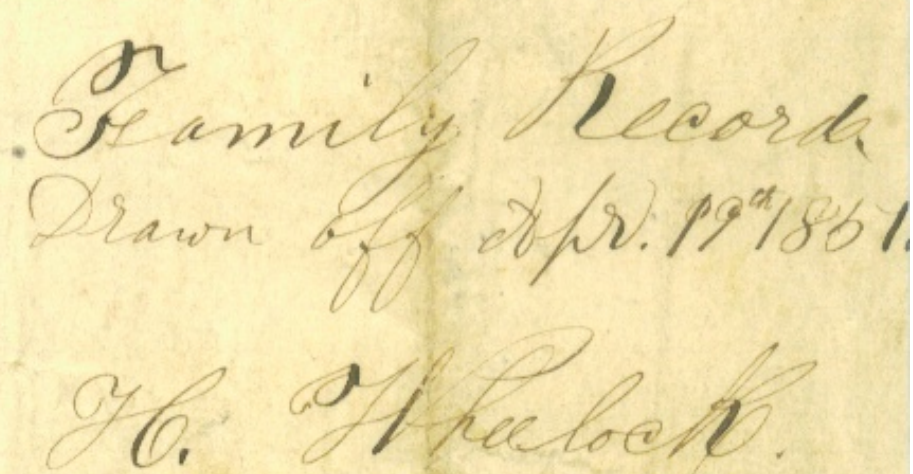 Family Record.
Drawn off Apr. 19th 1861.
H. Wheelock.